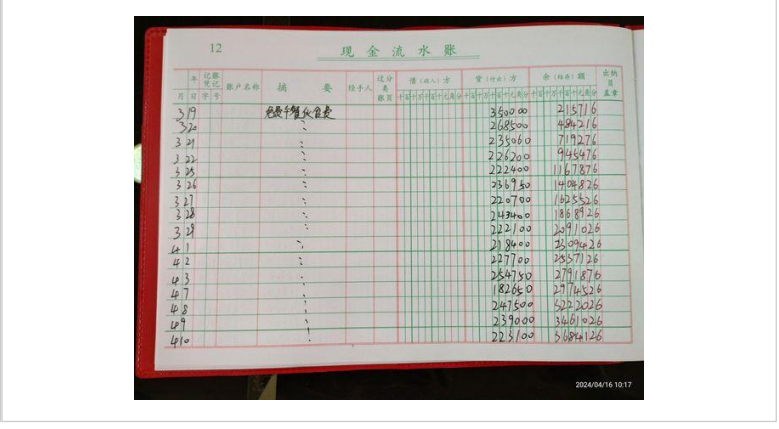 12
现金流水账
年 记账凭证 账户名称 摘 要 经手人 过分类账页 借（收入）方 贷（付出）方 余（结存）额 出纳员盖章
月 日 字 号 千百十万千百十元角分 千百十万千百十元角分 千百十万千百十元角分
3 19 免费午餐伙食费 350000 215716
3 20 〃 268500 484216
3 21 〃 235060 719276
3 22 〃 226200 945476
3 25 〃 222400 1167876
3 26 〃 236950 1404826
3 27 〃 220700 1625526
3 28 〃 243400 1868926
3 29 〃 222100 2091026
4 1 〃 218400 2309426
4 2 〃 227700 2537126
4 3 〃 254750 2791876
4 7 〃 182650 2974526
4 8 〃 247500 3222026
4 9 〃 239000 3461026
4 10 〃 223100 3684126
2024/04/16 10:17